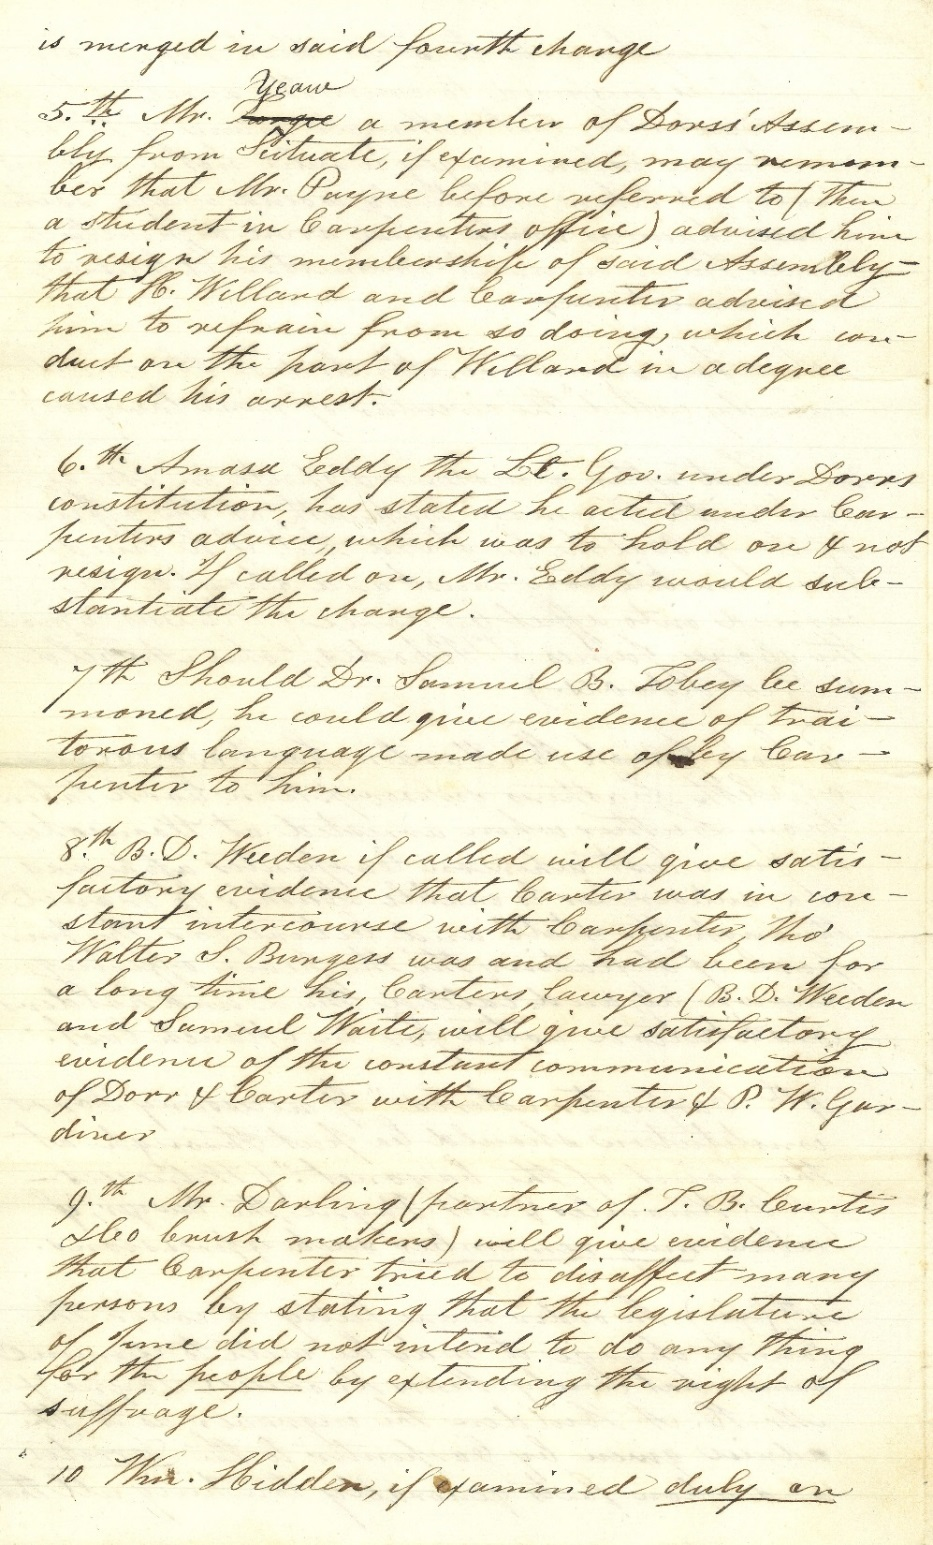 is merged in said fourth charge
Yeaw
5.th Mr. a member of Dorss' Assem-
bly from Scituate, if examined, may remem-
ber that Mr. Payne before referred to (then
a student in Carpenters office) advised him
to resign his membership of said Assembly-
that H. Willard and Carpenter advised
him to refrain from so doing, which con-
duct on the part of Willard in a degree
caused his arrest.
6.th Amasa Eddy the Lt. Gov. under Dorrs
constitution, has stated he acted under Car-
penters advice, which was to hold on & not
resign. If called on, Mr. Eddy would sub-
stantiate the charge.
7th Should Dr. Samuel B. Tobey be sum-
moned, he could give evidence of trai-
torous language made use of by Car-
penter to him.
8.th B. D. Weeden if called will give satis-
factory evidence that Carter was in con-
stant intercourse with Carpenter, tho'
Walter S. Burgess was and had been for
a long time his, Carters, lawyer (B. D. Weeden
and Samuel Waite, will give satisfactory
evidence of the constant communication
of Dorr & Carter with Carpenter & P. W. Gar-
diner
9.th Mr. Darling (partner of T. B. Curtis
& Co brush makers) will give evidence
that Carpenter tried to disaffect many
persons by stating that the legislature
of June did not intend to do any thing
for the people by extending the right of
suffrage.
10 Wm. Hidden, if examined duly on